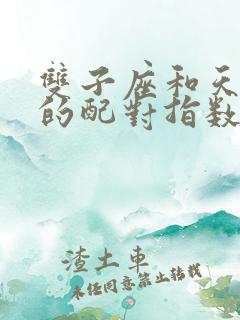 雙子座和天
的配對指數
渣土車
未經同意禁止轉載